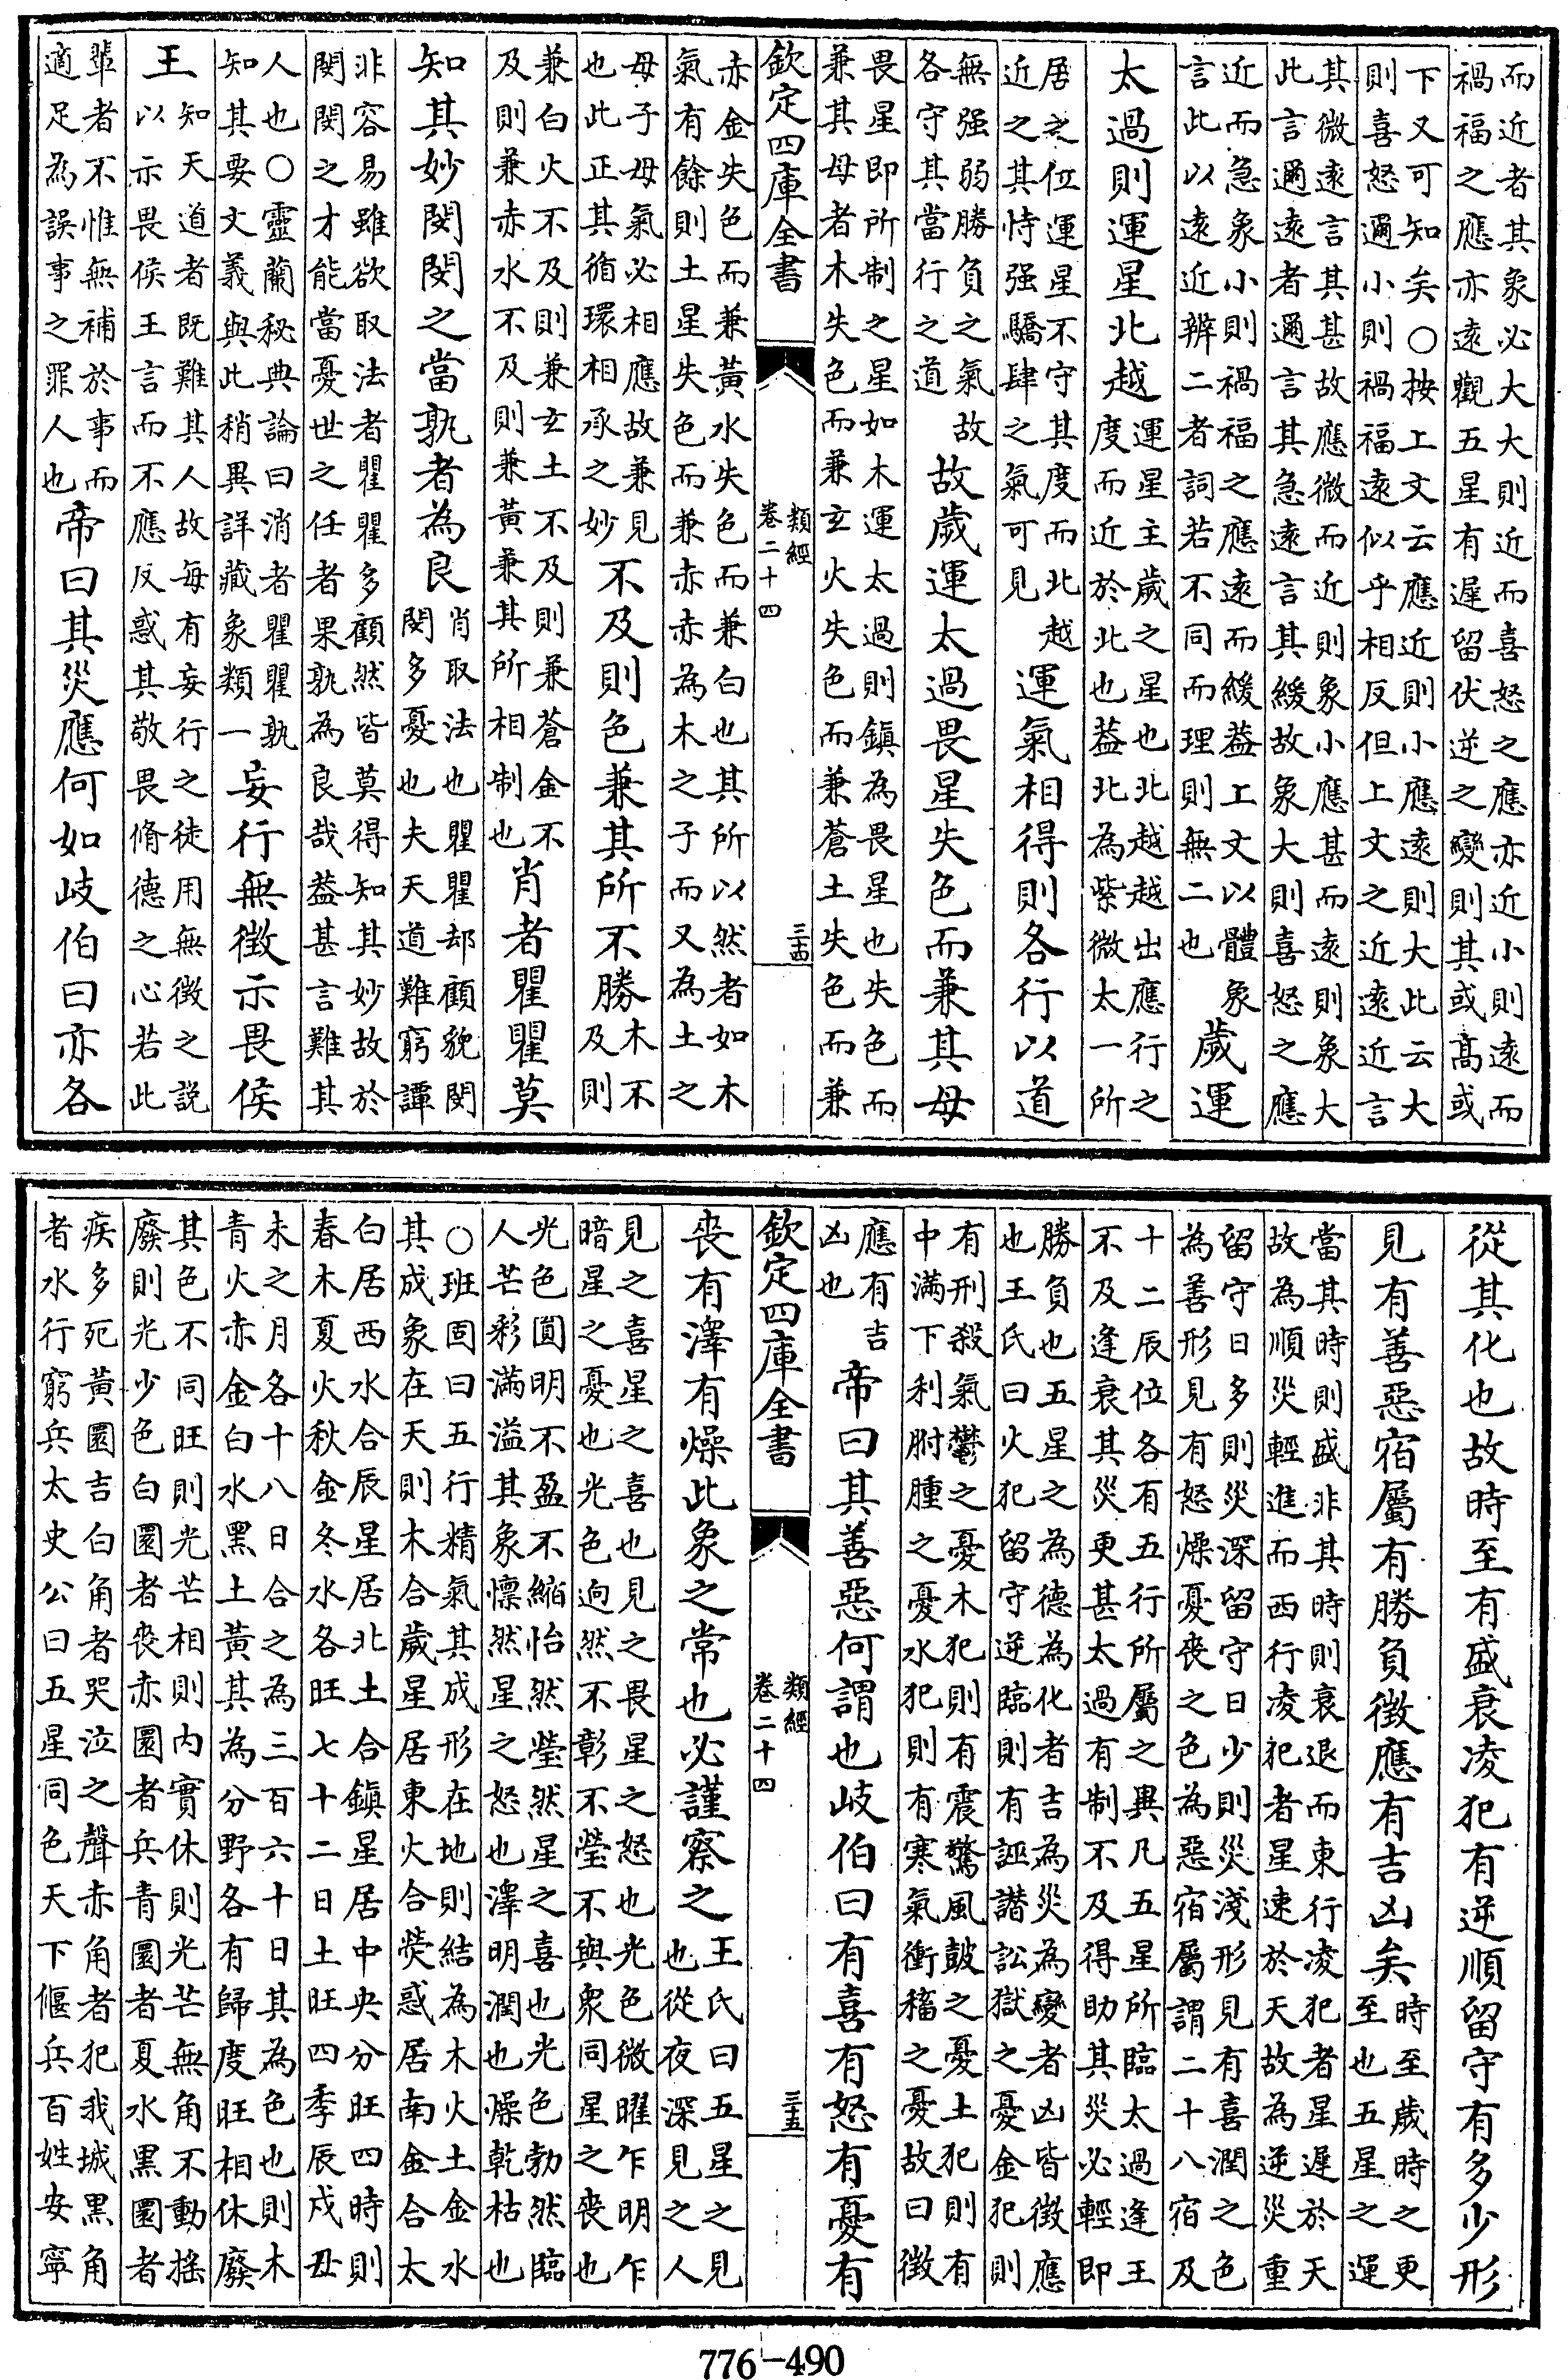 而近者其象必大大則近而喜怒之應亦近小則遠而
禍福之應亦遠觀五星有遲留伏逆之變則其或高或
下又可知矣○按上文云應近則小應遠則大此云大
則喜怒邇小則禍福遠似乎相反但上文之近遠近言
其微遠言其甚故應微而近則象小應甚而遠則象大
此言邇遠者邇言其急遠言其緩故象大則喜怒之應
近而急象小則禍福之應遠而緩葢上文以體象
言此以遠近辨二者詞若不同而理則無二也
歲運
太過則運星北越
運星主歲之星也北越越出應行之
度而近於北也葢北為紫微太一所
居之位運星不守其度而北越
近之其恃强驕肆之氣可見
運氣相得則各行以道
無强弱勝負之氣故
各守其當行之道
故歲運太過畏星失色而兼其母
畏星即所制之星如木運太過則鎮為畏星也失色而
兼其母者木失色而兼玄火失色而兼蒼土失色而兼
欽定四庫全書
類經
卷二十四
三十四
赤金失色而兼黃水失色而兼白也其所以然者如木
氣有餘則土星失色而兼赤赤為木之子而又為土之
母子母氣必相應故兼見
也此正其循環相承之妙
不及則色兼其所不勝
木不
及則
兼白火不及則兼玄土不及則兼蒼金不
及則兼赤水不及則兼黃兼其所相制也
肖者瞿瞿莫
知其妙閔閔之當孰者為良
肖取法也瞿瞿却顧貌閔
閔多憂也夫天道難窮譚
非容易雖欲取法者瞿瞿多顧然皆莫得知其妙故於
閔閔之才能當憂世之任者果孰為良哉葢甚言難其
人也○靈蘭秘典論曰消者瞿瞿孰
知其要文義與此稍異詳藏象類一
妄行無徵示畏侯
王
知天道者既難其人故每有妄行之徒用無徵之説
以示畏侯王言而不應反惑其敬畏脩德之心若此
輩者不惟無補於事而
適足為誤事之罪人也
帝曰其災應何如岐伯曰亦各
從其化也故時至有盛衰凌犯有逆順留守有多少形
見有善惡宿屬有勝負徵應有吉凶矣
時至歲時之更
至也五星之運
當其時則盛非其時則衰退而東行凌犯者星遲於天
故為順災輕進而西行凌犯者星速於天故為逆災重
留守日多則災深留守日少則災淺形見有喜潤之色
為善形見有怒燥憂喪之色為惡宿屬謂二十八宿及
十二辰位各有五行所屬之異凡五星所臨太過逢王
不及逢衰其災更甚太過有制不及得助其災必輕即
勝負也五星之為德為化者吉為災為變者凶皆徵應
也王氏曰火犯留守逆臨則有誣譖訟獄之憂金犯則
有刑殺氣鬱之憂木犯則有震驚風鼓之憂土犯則有
中滿下利胕腫之憂水犯則有寒氣衝稸之憂故曰徵
應有吉
凶也
帝曰其善惡何謂也岐伯曰有喜有怒有憂有
欽定四庫全書
類經
卷二十四
三十五
喪有澤有燥此象之常也必謹察之
王氏曰五星之見
也從夜深見之人
見之喜星之喜也見之畏星之怒也光色微曜乍明乍
暗星之憂也光色逈然不彰不瑩不與衆同星之喪也
光色圓明不盈不縮怡然瑩然星之喜也光色勃然臨
人芒彩滿溢其象懍然星之怒也澤明潤也燥乾枯也
○班固曰五行精氣其成形在地則結為木火土金水
其成象在天則木合歲星居東火合熒惑居南金合太
白居西水合辰星居北土合鎮星居中央分旺四時則
春木夏火秋金冬水各旺七十二日土旺四季辰戌丑
未之月各十八日合之為三百六十日其為色也則木
青火赤金白水黑土黃其為分野各有歸度旺相休廢
其色不同旺則光芒相則內實休則光芒無角不動搖
廢則光少色白圜者喪赤圜者兵青圜者夏水黑圜者
疾多死黃圜吉白角者哭泣之聲赤角者犯我城黑角
者水行窮兵太史公曰五星同色天下偃兵百姓安寧
776-490